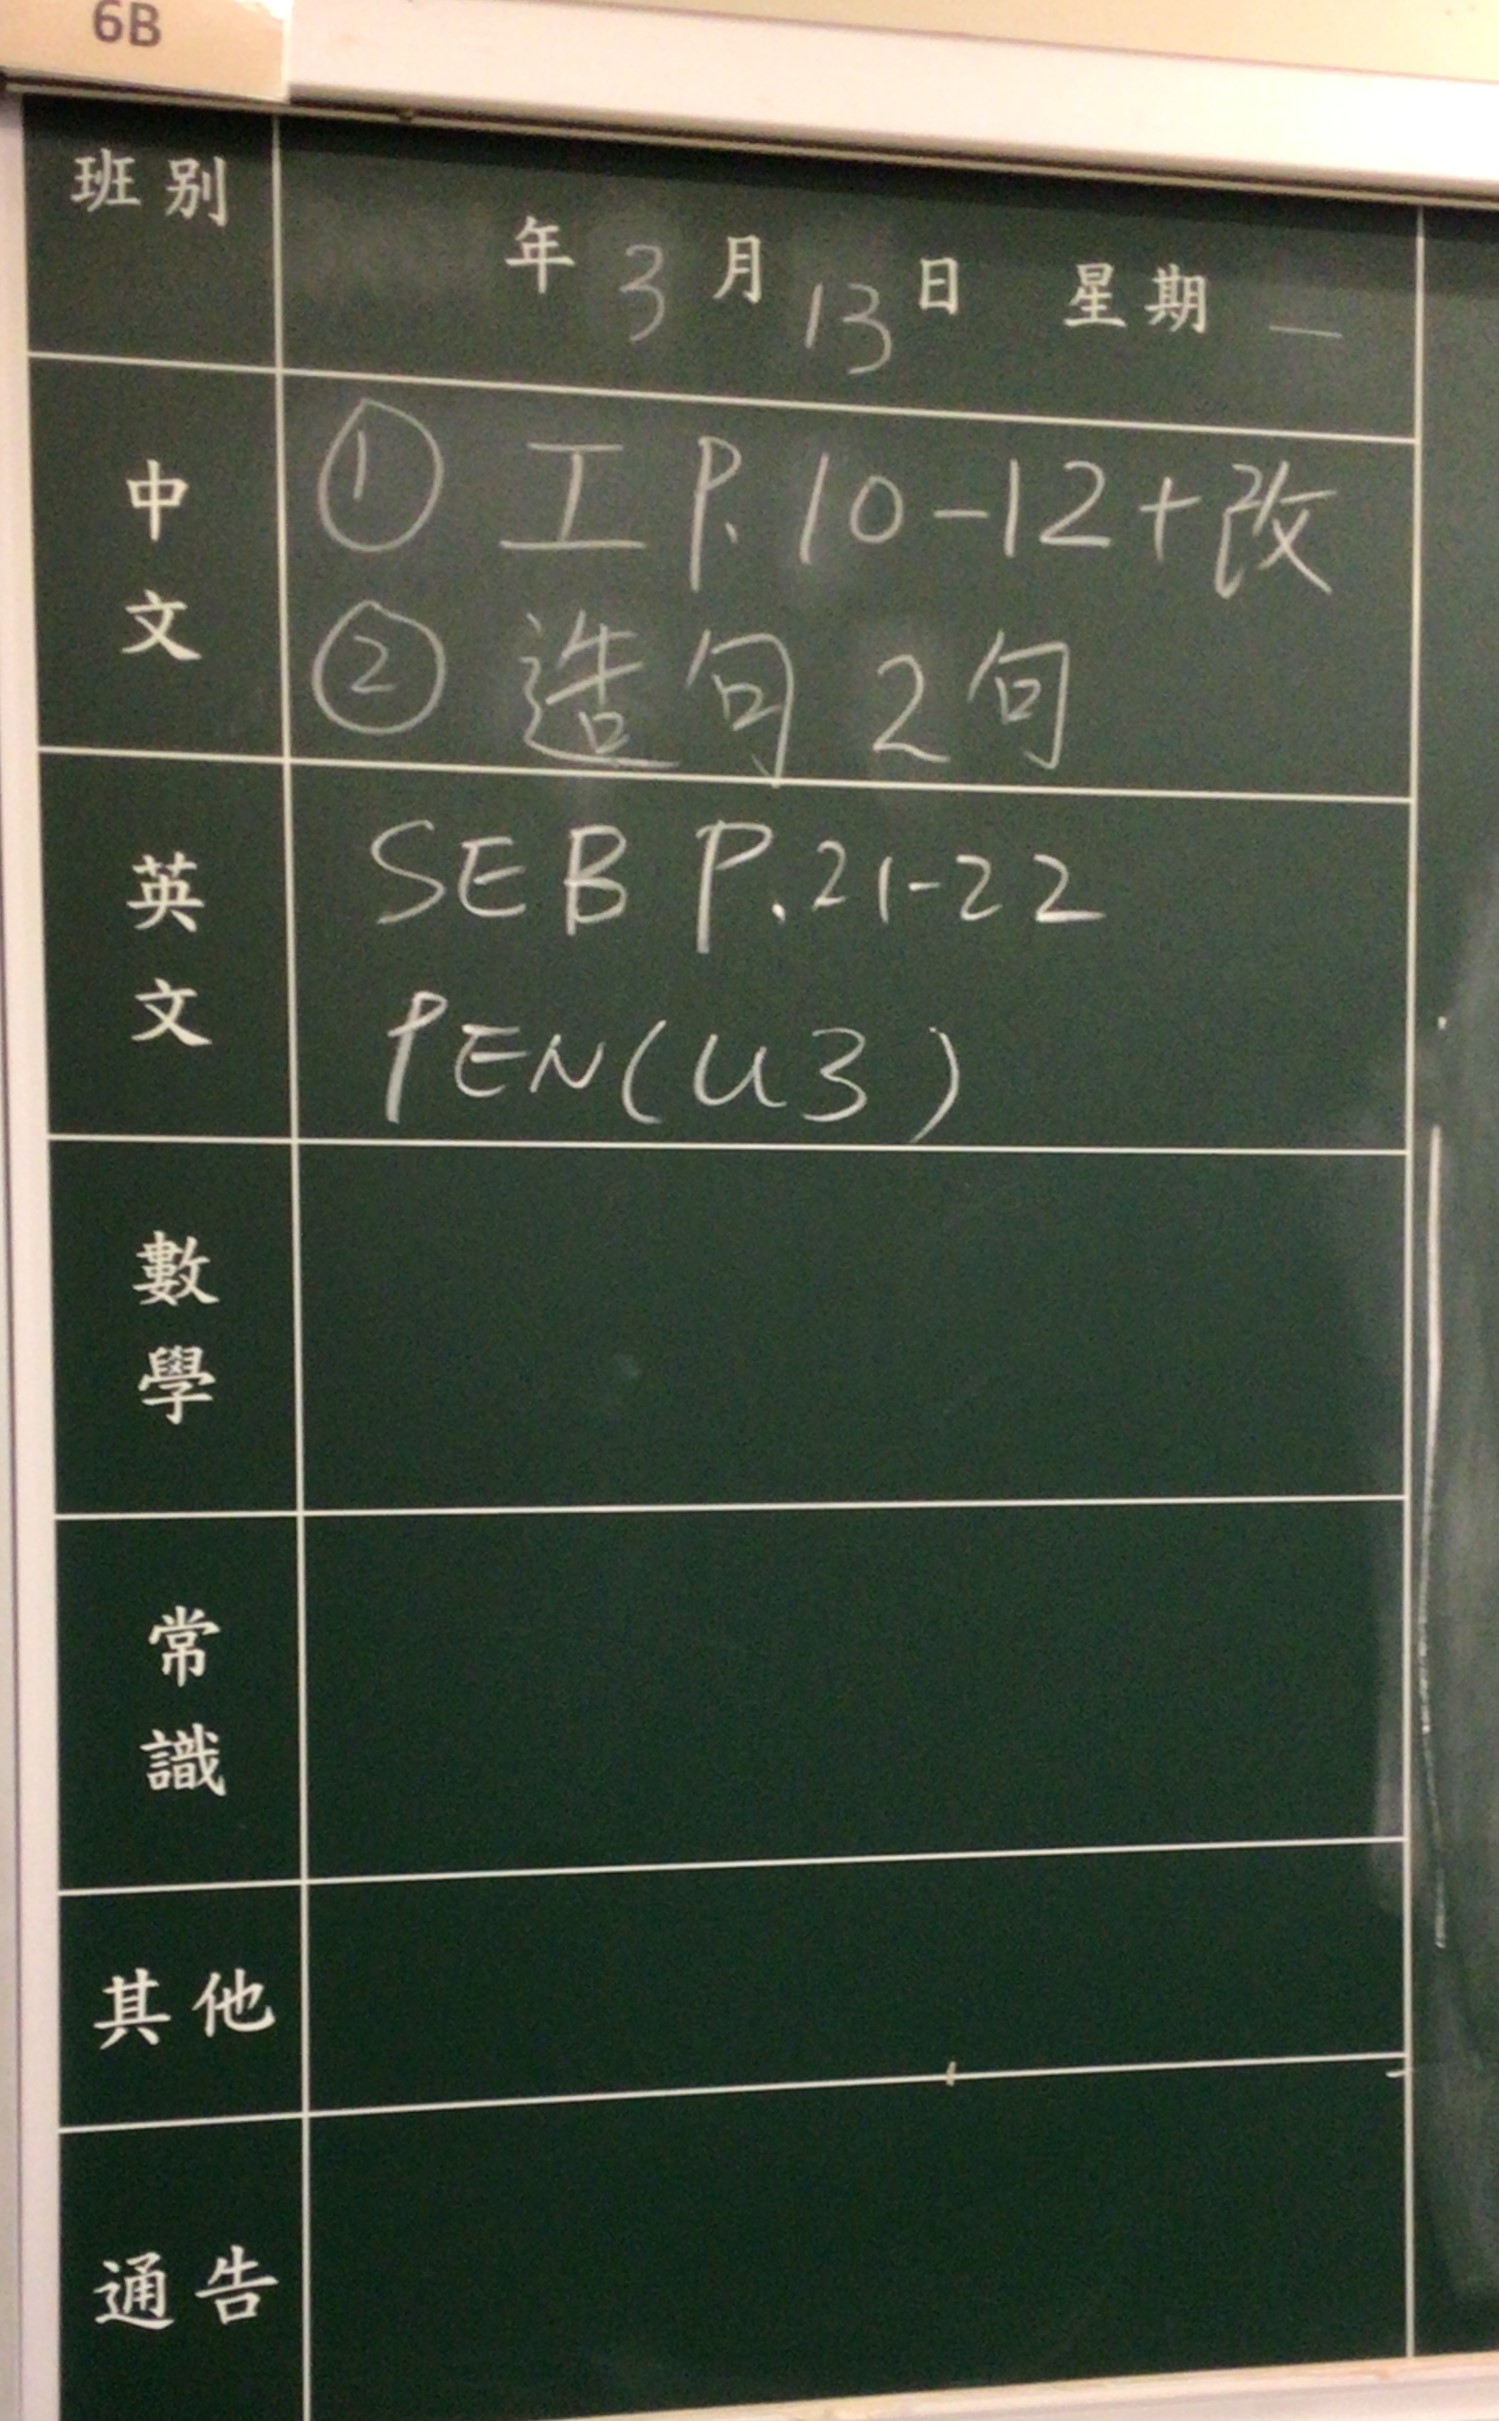 6B
班別
年 3 月 13 日 星期 一
中文
① 工 P. 10-12+改
② 造句 2句
英文
SEB P.21-22
PEN(U3)
數學
常識
其他
通告